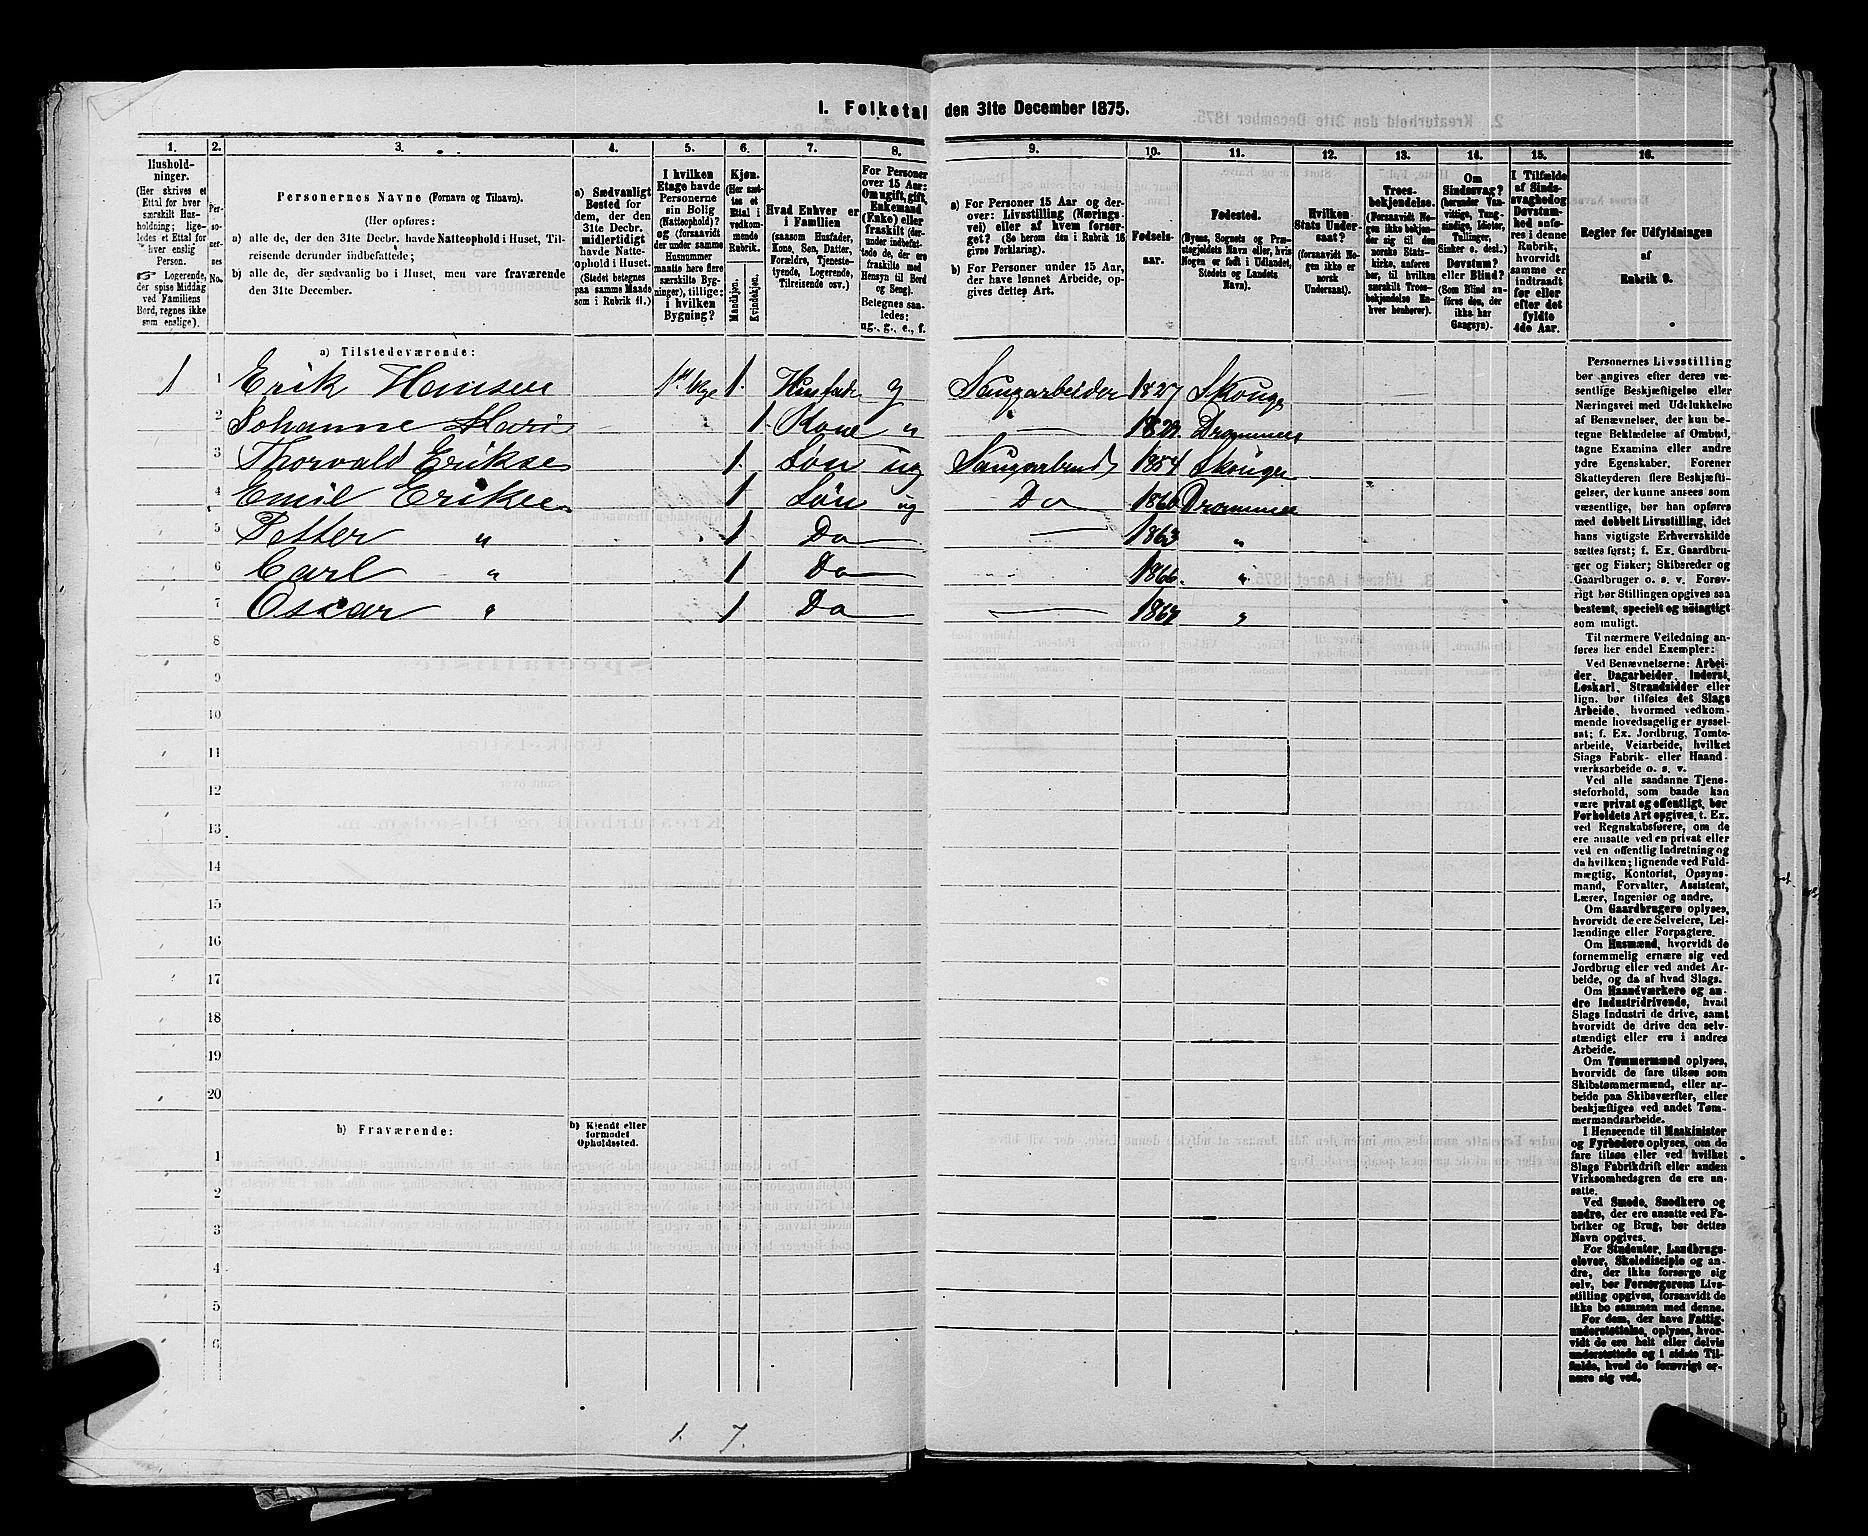 1. Folketal den 31te December 1875.
1. 2. 3. 4. 5. 6. 7. 8. 9. 10. 11. 12. 13. 14. 15. 16.
Husholdninger.
(Her skrives et Ettal for hver særskilt Husholdning; ligeledes et Ettal for hver enslig Person.
☞ Logerende, der spise Middag ved Familiens Bord, regnes ikke som enslige).
Personernes No.
Personernes Navne (Fornavn og Tilnavn).
(Her opføres:
a) alle de, der den 31te Decbr. havde Natteophold i Huset, Tilreisende derunder indbefattede;
b) alle de, der sædvanlig bo i Huset, men vare fraværende den 31te December.
a) Sædvanligt Bosted for dem, der den 31te Decbr. midlertidigt havde Natteophold i Huset. (Stedet betegnes paa samme Maade som i Rubrik 11.)
I hvilken Etage havde Personerne sin Bolig (Natteophold)? og (forsaavidt der under samme Husnummer maatte høre flere særskilte Bygninger), tillige: i hvilken Bygning?
Kjøn. (Her sættes et Ettal i vedkommende Rubrik.
Mandkjøn. Kvindekjøn.
Hvad Enhver er i Familien
(saasom Husfader, Kone, Søn, Datter, Forældre, Tjenestetyende, Logerende, Tilreisende osv.)
For Personer over 15 Aar: Om ugift, gift, Enkemand (Enke) eller fraskilt (derunder indbefattede de, der ere fraskilte med Hensyn til Bord og Seng).
Betegnes saaledes: ug., g., e., f.
a) For Personer 15 Aar og derover: Livsstilling (Næringsvei) eller af hvem forsørget? (Se herom den i Rubrik 16 givne Forklaring).
b) For Personer under 15 Aar, der have lønnet Arbeide, opgives dettes Art.
Fødselsaar.
Fødested.
(Byens, Sognets og Præstegjeldets Navn eller, hvis Nogen er født i Udlandet, Stedets og Landets Navn).
Hvilken Stats Undersaat?
(forsaavidt Nogen ikke er norsk Undersaat).
Troesbekjendelse.
(Forsaavidt Nogen ikke bekjender sig til den norske Statskirke, anføres her, til hvilken særskilt Troesbekjendelse Enhver henhører).
Om Sindssvag? (herunder Vanvittige, Tungsindige, Idioter, Tullinger, Sinker o. desl.)
Døvstum? eller Blind?
(Som Blind anføres den, der ikke har Gangsyn).
I Tilfælde af Sindssvaghed og Døvstumhed anføres i denne Rubrik, hvorvidt samme er indtraadt før eller efter det fyldte 4de Aar.
Regler for Udfyldningen af Rubrik 9.
a) Tilstedeværende:
1 1 Erik Hansen 1 Husfader g Saugarbeider 1827 Skouge
2 Johanne Mari 1 Kone " Drammen
3 Thorvald Eriksen 1 Søn ug 1854 Skouge
4 Emil Eriksen 1 Søn ug Do 1860 Drammen
5 Petter " 1 Do 1863 "
6 Carl " 1 Do 1866 "
7 Oscar " 1 Do "
8
9
10
11
12
13
14
15
16
17
18
19
20
b) Fraværende:
b) Kjendt eller formodet Opholdssted.
1
2
3
4
5
6
1. 7.
Personernes Livsstilling
bør angives efter deres væ-
sentlige Beskjæftigelse eller
Næringsvei med Udelukkelse
af Benævnelser, der kun be-
tegne Beklædelse af Ombud,
tagne Examina eller andre
ydre Egenskaber. Forener
Skatteyderen flere Beskjæfti-
gelser, der kunne ansees som
væsentlige, bør han opføres
med dobbelt Livsstilling, idet
hans vigtigste Erhvervskilde
sættes først; f. Ex. Gaardbru-
ger og Fisker; Skibsreder og
Gaardbruger o. s. v. Forøv-
rigt bør Stillingen opgives saa
bestemt, specielt og nöiagtigt
som muligt.
Til nærmere Veiledning an-
føres her endel Exempler:
Ved Benævnelserne: Arbei-
der, Dagarbeider, Inderst,
Løskarl, Strandsidder eller
lign. bør tilføies det Slags
Arbeide, hvormed vedkom-
mende hovedsagelig er syssel-
sat; f. Ex. Jordbrug, Tomte-
arbeide, Veiarbeide, hvilket
Slags Fabrik- eller Haand-
værksarbeide o. s. v.
Ved alle saadanne Tjene-
steforhold, som baade kan
være privat og offentligt, bør
Forholdets Art opgives, t. Ex.
ved Regnskabsførere, om de
ere ansatte ved en privat eller
ved en offentlig Indretning og
da hvilken; lignende ved Fuld-
mægtig, Kontorist, Opsyns-
mand, Forvalter, Assistent,
Lærer, Ingeniør og andre.
Om Gaardbrugere oplyses,
hvorvidt de ere Selveiere, Lei-
lændinge eller Forpagtere.
Om Husmænd, hvorvidt de
fornemmelig ernære sig ved
Jordbrug eller ved andet Ar-
beide, og da af hvad Slags.
Om Haandværkere og an-
dre Industridrivende, hvad
Slags Industri de drive, samt
hvorvidt de drive den selv-
stændigt eller ere i andres
Arbeide.
Om Tømmermænd oplyses,
hvorvidt de fare tilsøs som
Skibstømmermænd, eller ar-
beide paa Skibsværfter, eller
beskjæftiges ved andet Tøm-
mermandsarbeide.
I Henseende til Maskinister
og Fyrbødere oplyses, om de
fare tilsøs eller ved hvilket
Slags Fabrikdrift eller anden
Virksomhedsgren de ere an-
satte.
Ved Smede, Snedkere og
andre, der ere ansatte ved Fa-
briker og Brug, bør dettes
Navn opgives.
For Studenter, Landbrugs-
elever, Skoledisciple og an-
dre, der ikke forsørge sig
selv, bør Forsørgerens Livs-
stilling opgives, forsaavidt de
ikke bo sammen med denne.
For dem, der have Fattig-
understøttelse, oplyses, hvor-
vidt de ere helt eller delvis
understøttede og i sidste Til-
fælde, hvad de forøvrigt er-
nære sig ved.